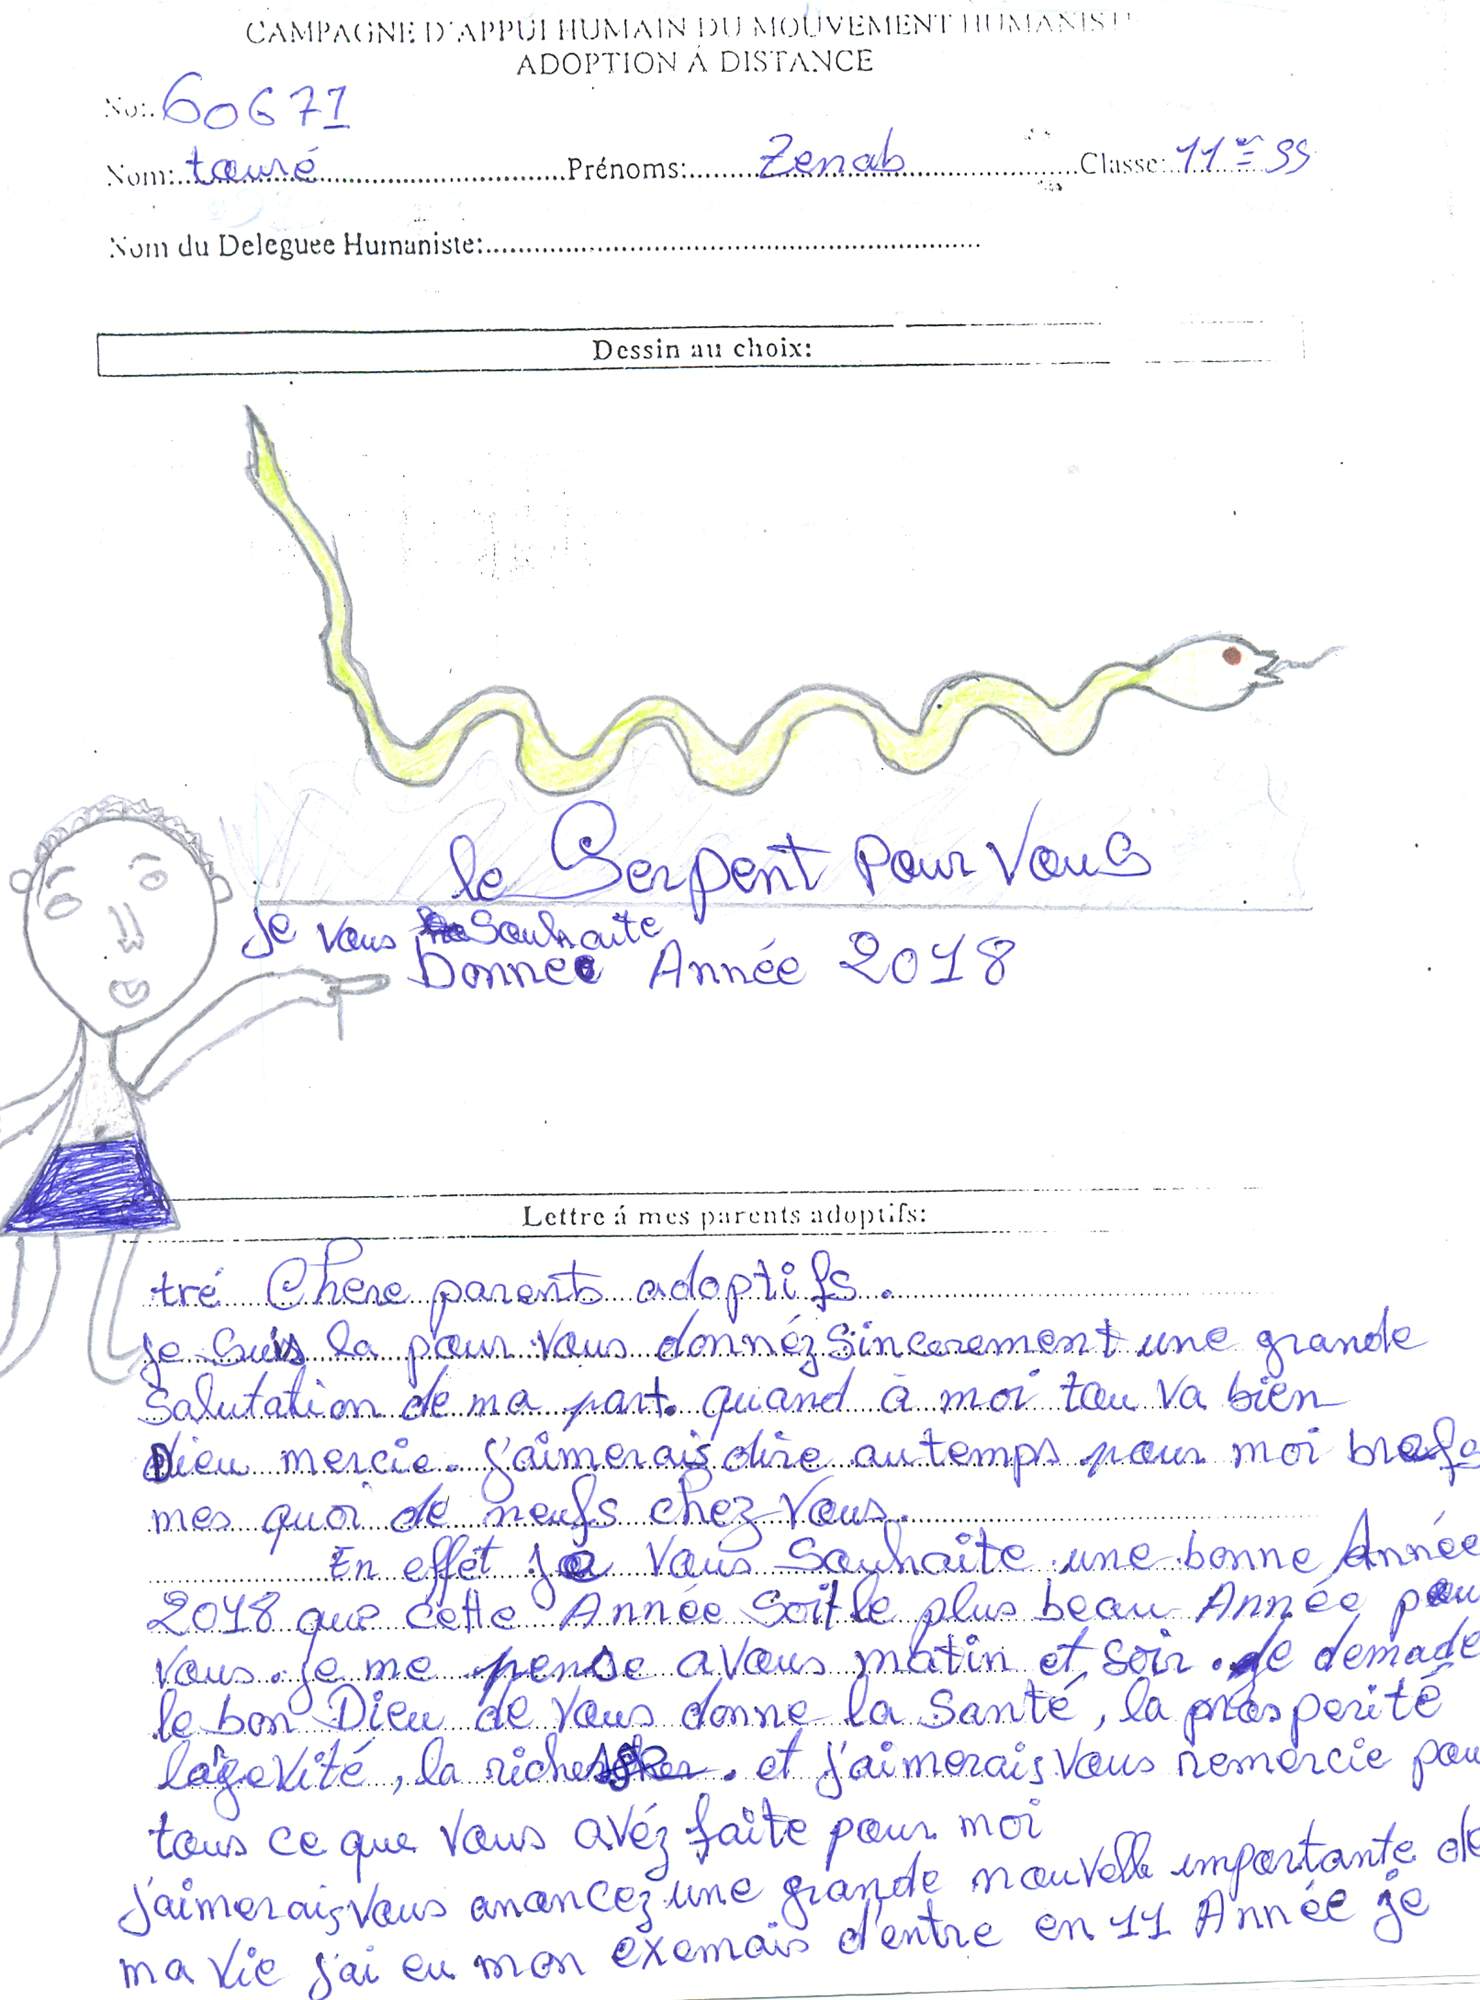 CAMPAGNE D'APPUI HUMAIN DU MOUVEMENT HUMANISTE
ADOPTION Á DISTANCE
No:. 60671
Nom: touré Prénoms: Zenab Classe: 11 SS
Nom du Deleguee Humaniste:
Dessin au choix:
le Serpent Pour Vous
je vous souhaite
bonne Année 2018
Lettre á mes parents adoptifs:
tré Chere parents adoptifs.
je suis la pour vous donnéz sincerement une grande
salutation de ma part. quand à moi tou va bien
Dieu mercie. j'aimerais dire autemps pour moi brefe
mes quoi de neufs chez vous.
En effet je vous souhaite une bonne Année
2018 que cette Année soit le plus beau Année pou
vous. je me pense a vous matin et soir. je demade
le bon Dieu de vous donne la santé, la prosperité
logevité, la richesse. et j'aimerais vous remercie pou
tous ce que vous avéz faite pour moi
j'aimerais vous anoncez une grande nouvelle importante de
ma vie j'ai eu mon exemais d'entre en 11 Année je